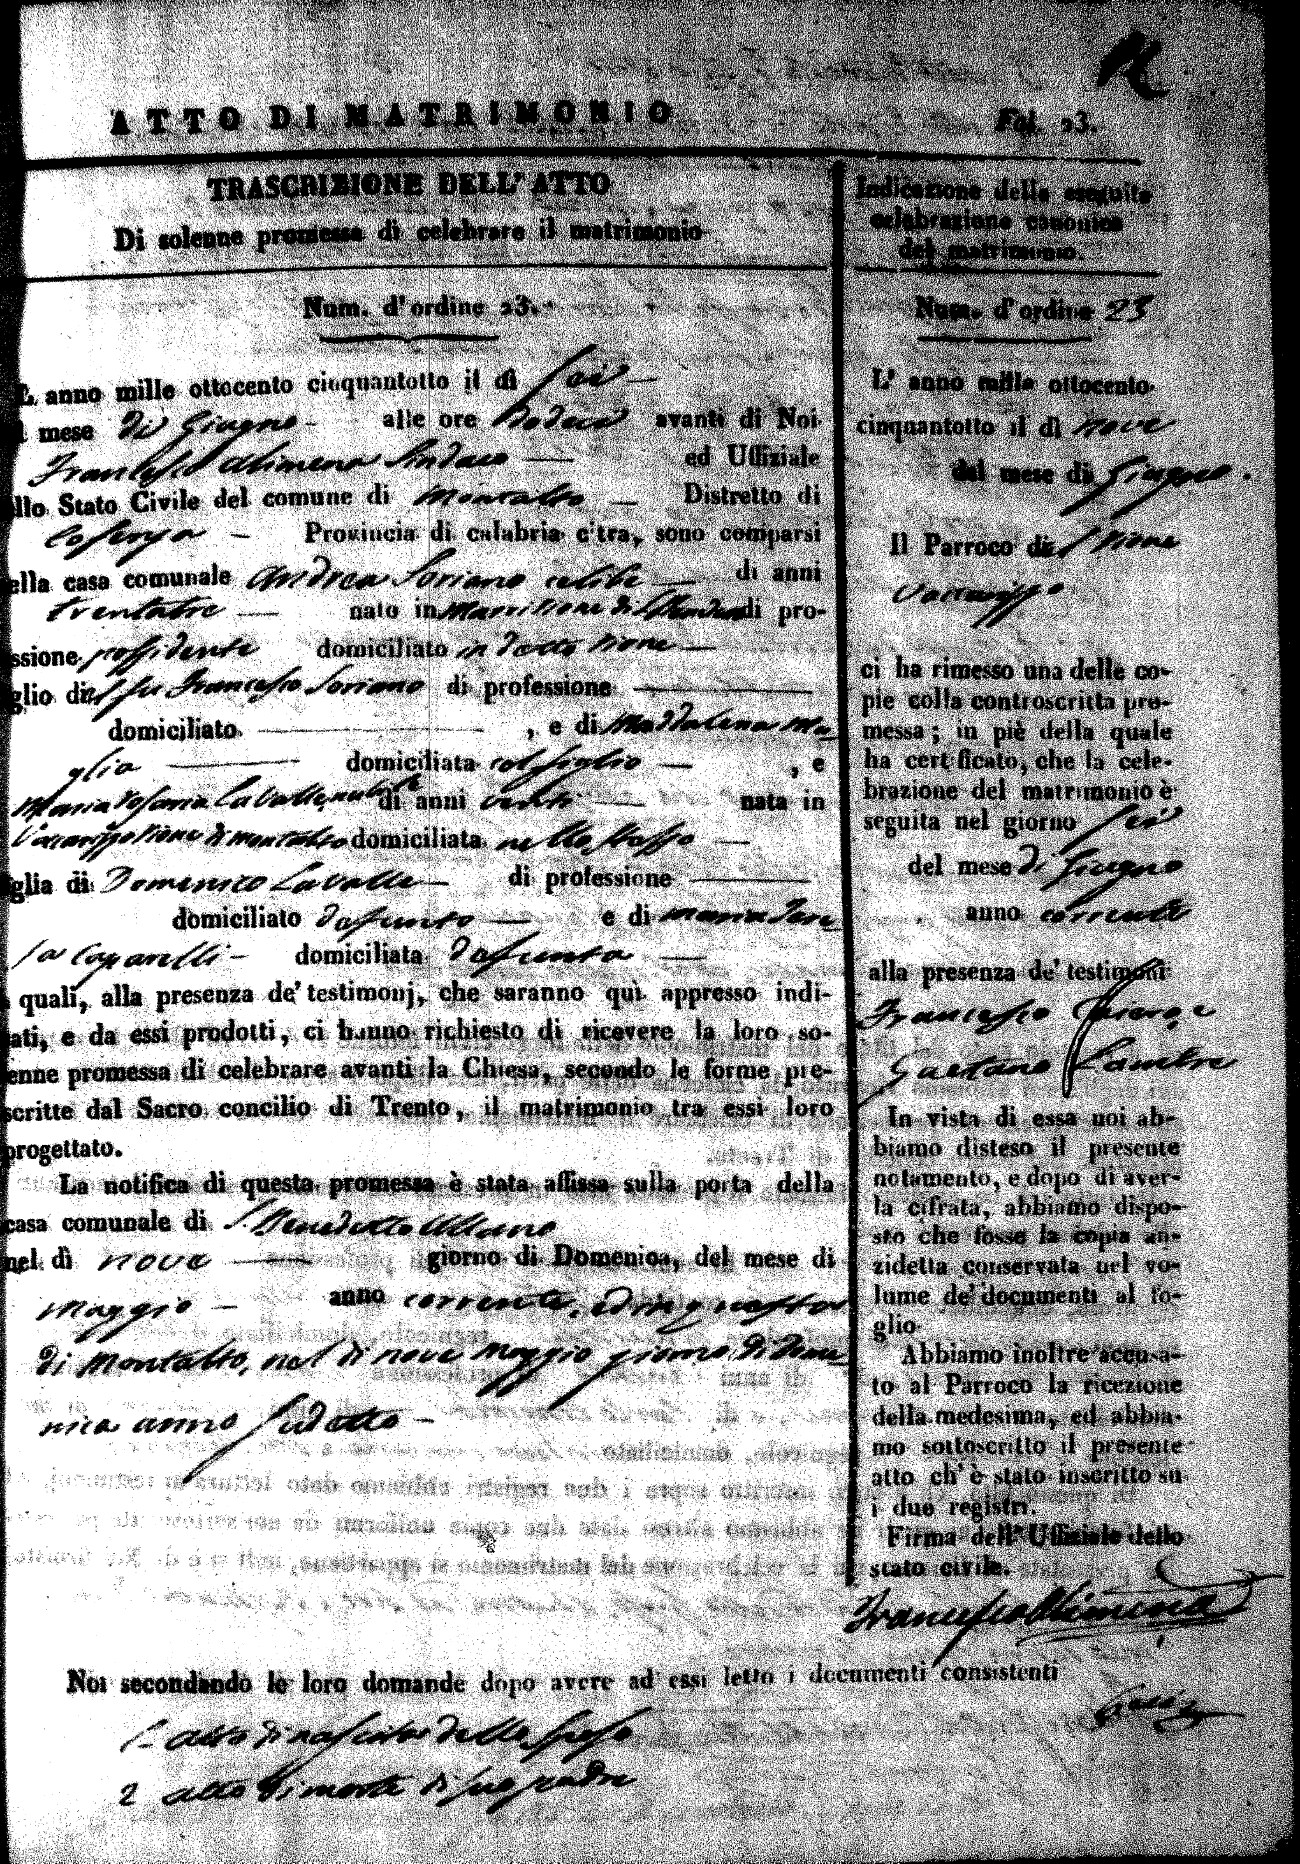 ATTO DI MATRIMONIO
Fol. 23.
TRASCRIZIONE DELL' ATTO
Di solenne promessa di celebrare il matrimonio
Num. d'ordine 23.
L' anno mille ottocento cinquantotto il dì sei
mese di Giugno alle ore dodeci avanti di Noi
Francesco Alimena Sindaco ed Uffiziale
llo Stato Civile del comune di Montalto Distretto di
Cosenza Provincia di calabria c'tra, sono comparsi
ella casa comunale Andrea Soriano celibe di anni
trentatre nato in di pro-
ssione possidente domiciliato in detto Rione
glio del fu Francesco Soriano di professione
domiciliato , e di Maddalena Ma
glio domiciliata col figlio , e
Maria Rosaria Lavalle nubile di anni venti nata in
Vaccarizzo Rione di Montalto domiciliata nello stesso
glia di Domenico Lavalle di professione
domiciliato defunto e di Maria Tere
sa Caparelli domiciliata defunta
quali, alla presenza de' testimonj, che saranno quì appresso indi-
ati, e da essi prodotti, ci hanno richiesto di ricevere la loro so-
enne promessa di celebrare avanti la Chiesa, secondo le forme pre-
scritte dal Sacro concilio di Trento, il matrimonio tra essi loro
progettato.
La notifica di questa promessa è stata affissa sulla porta della
casa comunale di S. Benedetto Ullano
nel dì nove giorno di Domenica, del mese di
Maggio anno corrente, ed in questa
di Montalto, nel dì nove Maggio giorno di Dome
nica anno sudetto
Indicazione della eseguita
celebrazione canonica
del matrimonio.
Num. d'ordine 23
L' anno mille ottocento
cinquantotto il dì nove
del mese di Giugno.
Il Parroco del Rione
Vaccarizzo
ci ha rimesso una delle co-
pie colla controscritta pro-
messa; in piè della quale
ha certificato, che la cele-
brazione del matrimonio è
seguita nel giorno sei
del mese di Giugno
anno corrente
alla presenza de' testimonj
Francesco e
Gaetano
In vista di essa noi ab-
biamo disteso il presente
notamento, e dopo di aver-
la cifrata, abbiamo dispo-
sto che fosse la copia an-
zidetta conservata nel vo-
lume de' documenti al fo-
glio
Abbiamo inoltre accusa-
to al Parroco la ricezione
della medesima, ed abbia-
mo sottoscritto il presente
atto ch' è stato inscritto su
i due registri.
Firma dell' Uffiziale dello
stato civile.
Francesco Alimena
Noi secondando le loro domande dopo avere ad essi letto i documenti consistenti
1° atto di nascita dello sposo
2 atto di morte di suo padre